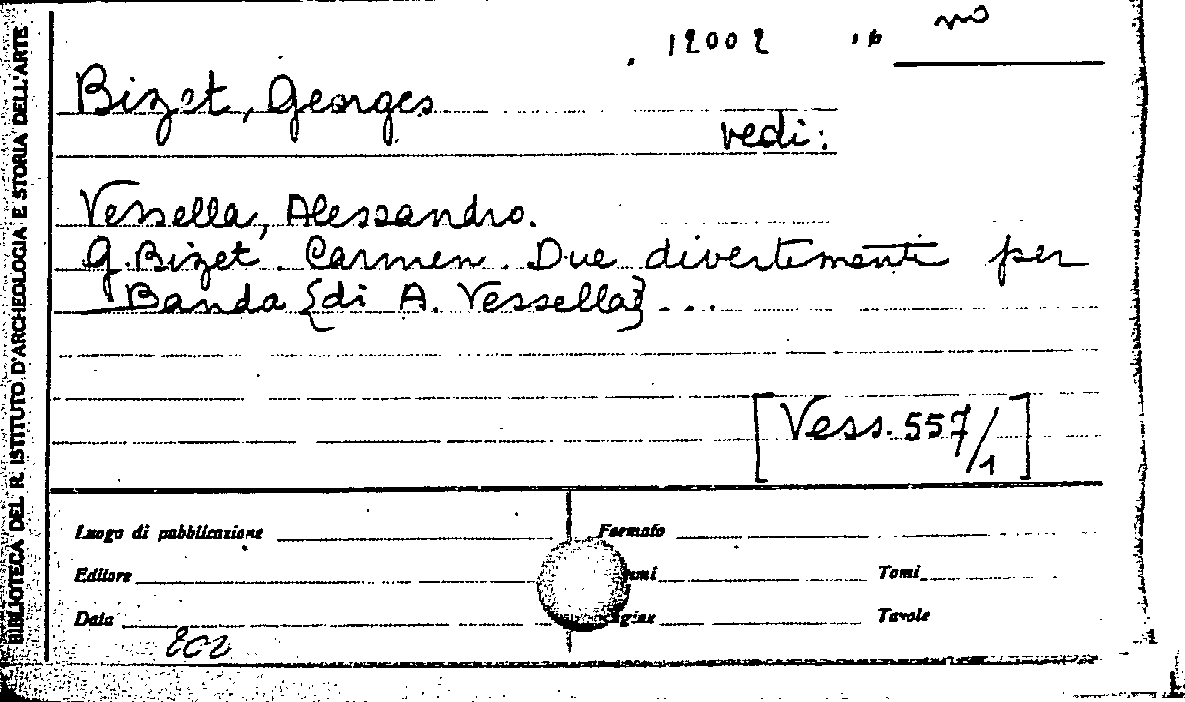 BIBLIOTECA DEL R. ISTITUTO D'ARCHEOLOGIA E STORIA DELL'ARTE
12002
Bizet, Georges
vedi:
Vessella, Alessandro.
G. Bizet. Carmen. Due divertimenti per
Banda {di A. Vessella} ...
[Vess. 557/1]
Luogo di pubblicazione Formato
Editore Tomi
Data Tavole
202